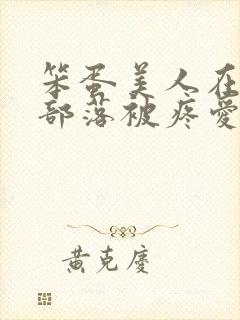 笨蛋美人在
部落被疼爱
黄克庆